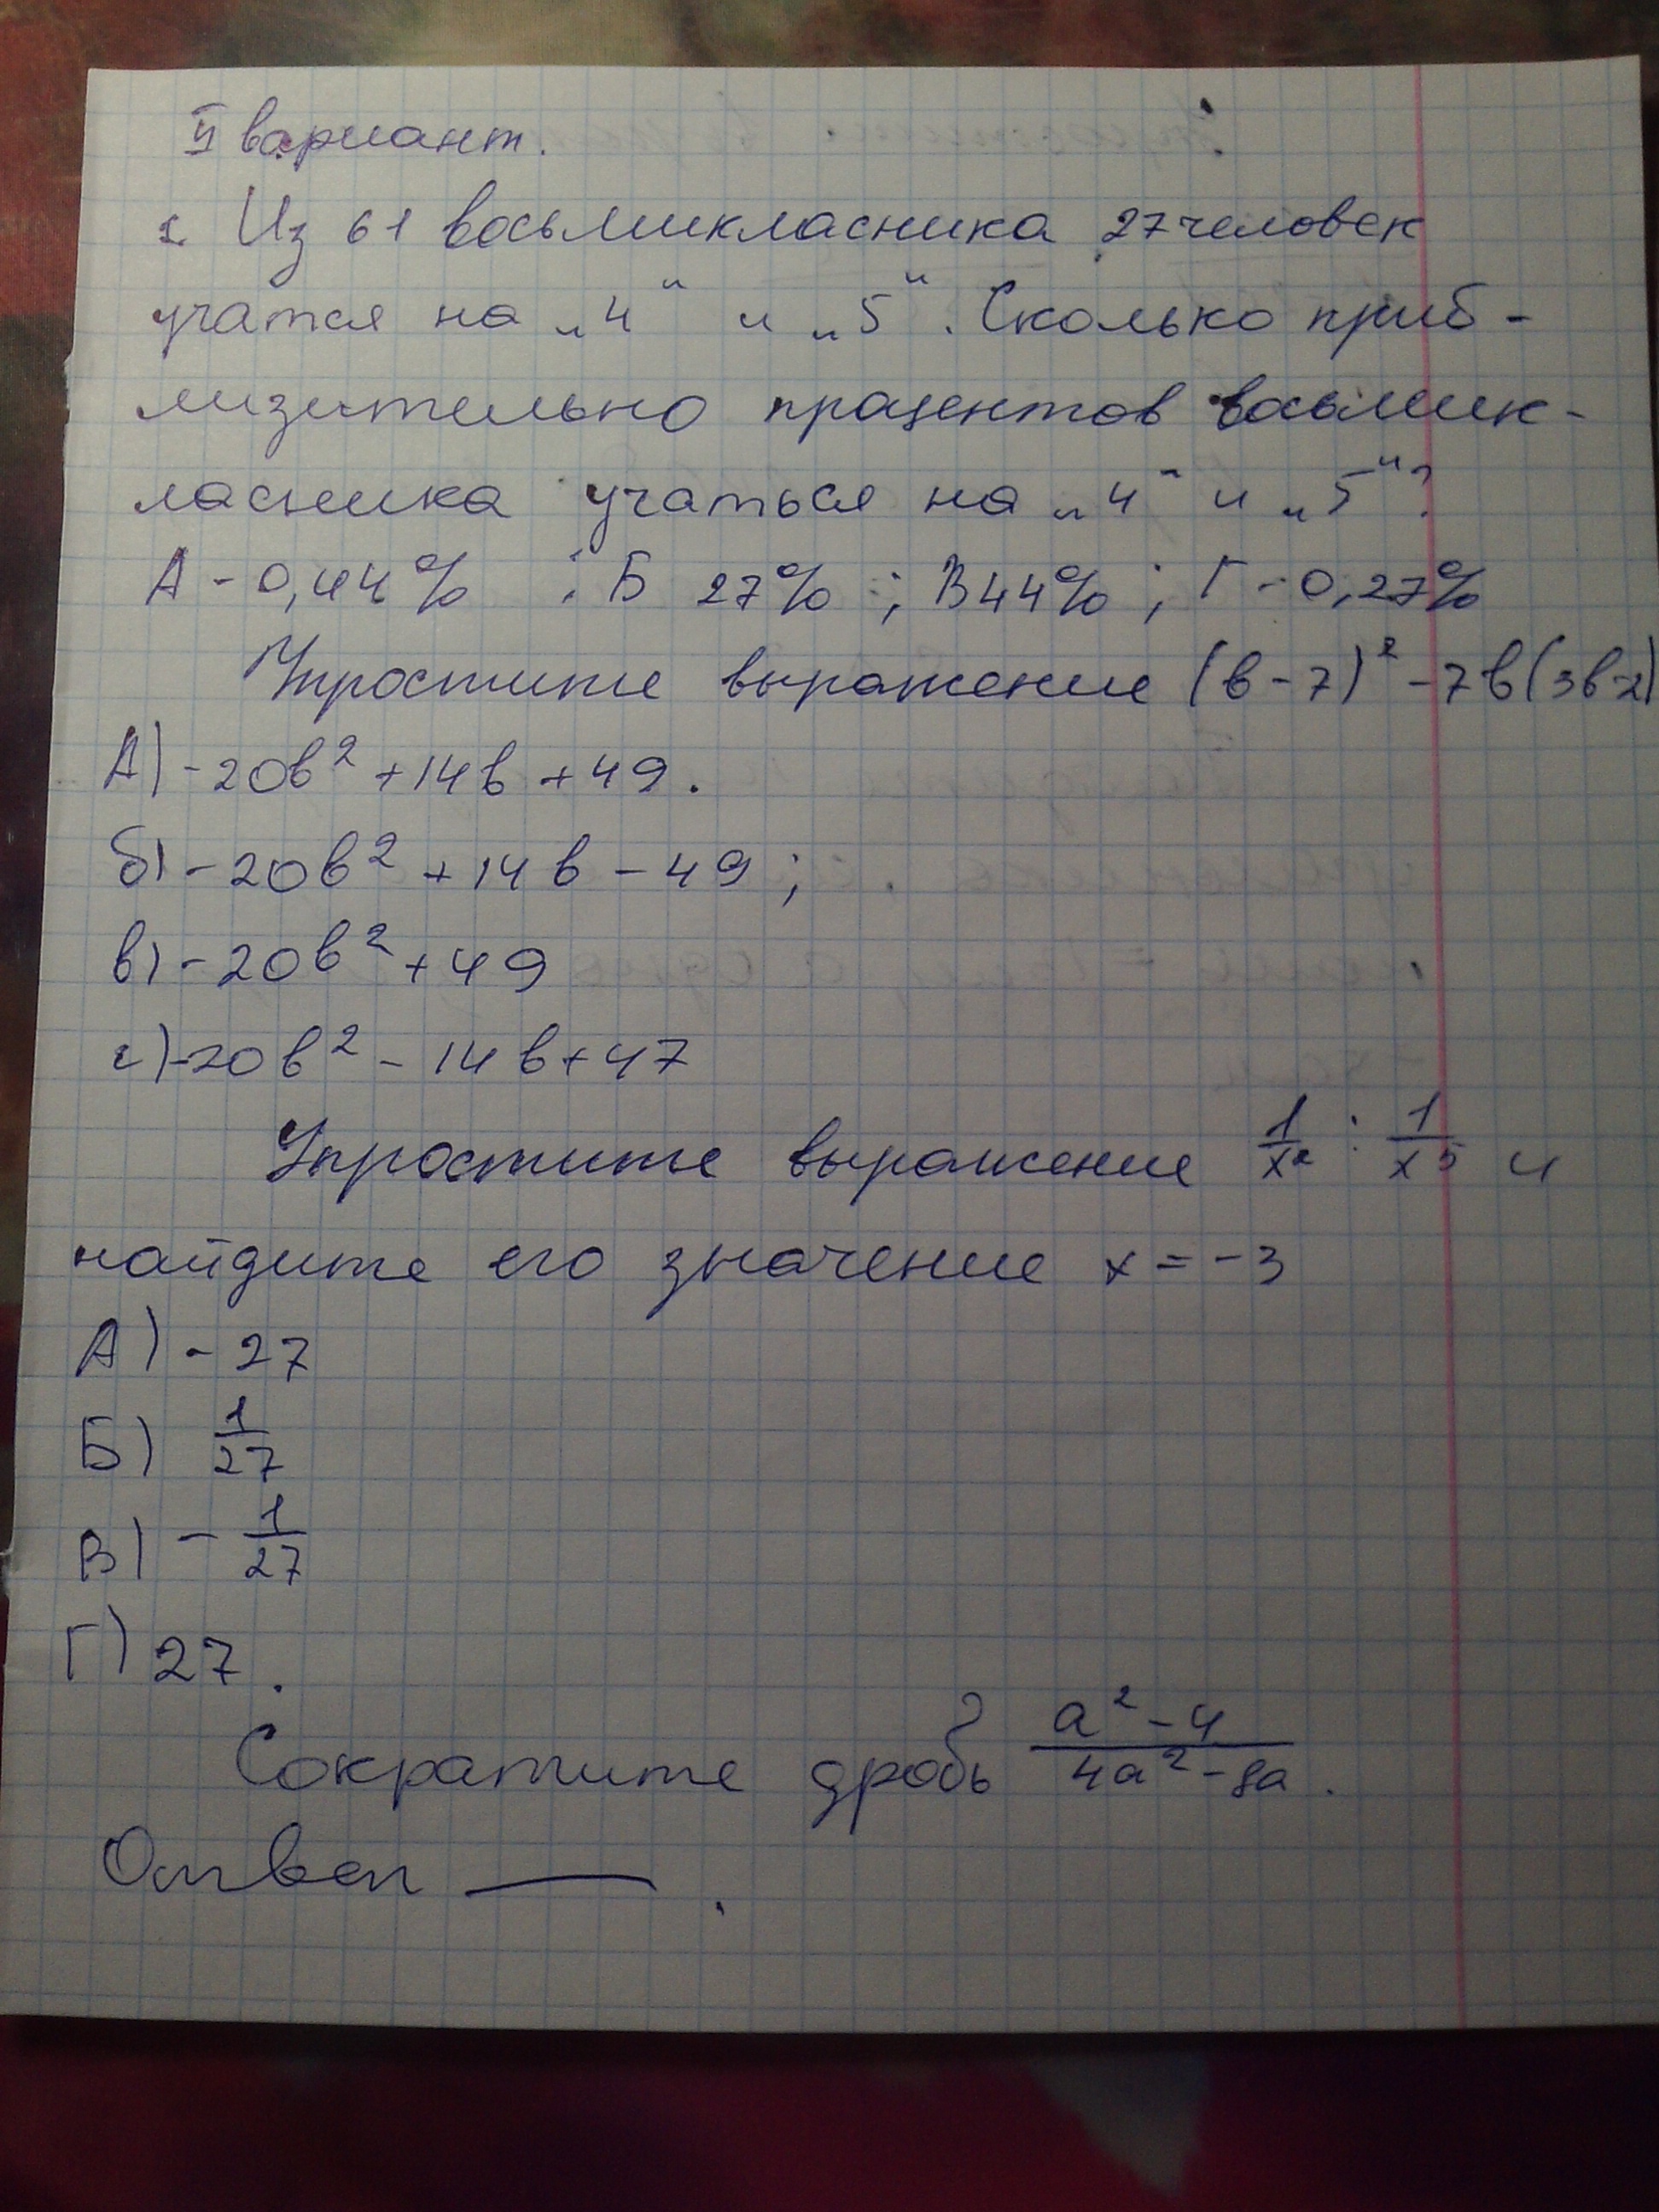 II вариант.
1. Из 61 восьмикласника 27 человек
учатся на „4“ и „5“. Сколько приб-
лизительно процентов восьмик-
ласника учаться на „4“ и „5“?
А - 0,44% ; Б 27% ; В 44% ; Г - 0,27%
Упростите выражение (в - 7)² - 7в(3в-2)
А) - 20в² + 14в + 49.
б) - 20в² + 14в - 49 ;
в) - 20в² + 49
г) -20в² - 14в + 47
Упростите выражение 1/x² : 1/x⁵ и
найдите его значение x = - 3
А) - 27
Б) 1/27
В) - 1/27
Г) 27 .
Сократите дробь (a² - 4)/(4a² - 8a) .
Ответ ___ .